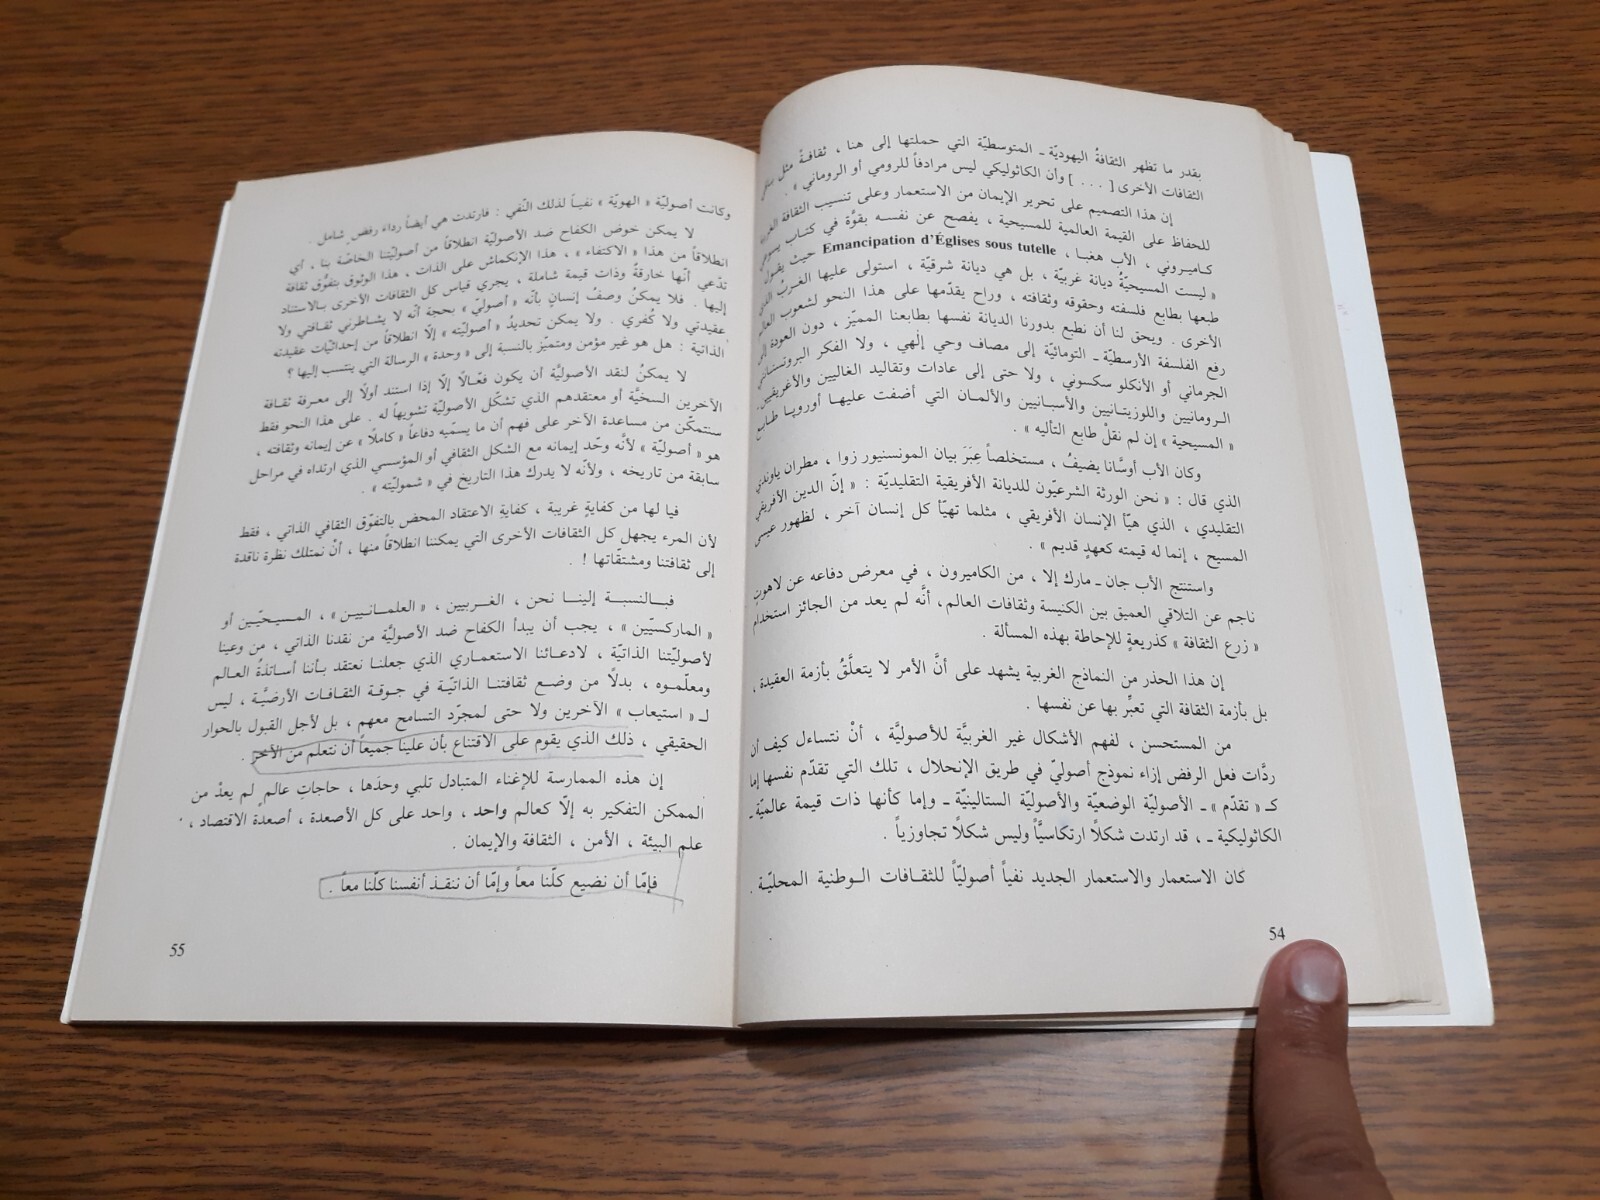 بقدر ما تظهر الثقافةُ اليهوديّة ـ المتوسطيّة التي حملتها إلى هنا ، ثقافةً مثل باقي
الثقافات الأخرى [ . . . ] وأن الكاثوليكي ليس مرادفاً للرومي أو الروماني » .
إن هذا التصميم على تحرير الإيمان من الاستعمار وعلى تنسيب الثقافة الغربية
للحفاظ على القيمة العالمية للمسيحية ، يفصح عن نفسه بقوَّة في كتاب يسوعي
كاميروني ، الأب هغبا ، Emancipation d'Églises sous tutelle حيث يقول
« ليست المسيحيّةُ ديانة غربيّة ، بل هي ديانة شرقيّة ، استولى عليها الغربُ الذي
طبعها بطابع فلسفته وحقوقه وثقافته ، وراح يقدّمها على هذا النحو لشعوب العالم
الأخرى . ويحق لنا أن نطبع بدورنا الديانة نفسها بطابعنا المميّز ، دون العودة إلى
رفع الفلسفة الأرسطيّة ـ التومائيّة إلى مصاف وحي إلٰهي ، ولا الفكر البروتستانتي
الجرماني أو الأنكلو سكسوني ، ولا حتى إلى عادات وتقاليد الغاليين والأغريقيين
الرومانيين واللوزيتانيين والأسبانيين والألمان التي أضفت عليها أوروبا طابع
« المسيحية » إن لم نقلْ طابع التأليه » .
وكان الأب أوسَّانا يضيفُ ، مستخلصاً عِبَرَ بيان المونسنيور زوا ، مطران ياوندي
الذي قال : « نحن الورثة الشرعيّون للديانة الأفريقية التقليديّة : « إنَّ الدين الأفريقي
التقليدي ، الذي هيّأ الإنسان الأفريقي ، مثلما تهيّأ كل إنسان آخر ، لظهور عيسى
المسيح ، إنما له قيمته كعهدٍ قديم » .
واستنتج الأب جان ـ مارك إلا ، من الكاميرون ، في معرض دفاعه عن لاهوت
ناجم عن التلاقي العميق بين الكنيسة وثقافات العالم، أنَّه لم يعد من الجائز استخدام
« زرع الثقافة » كذريعةٍ للإحاطة بهذه المسألة .
إن هذا الحذر من النماذج الغربية يشهد على أنَّ الأمر لا يتعلَّقُ بأزمة العقيدة ،
بل بأزمة الثقافة التي تعبِّر بها عن نفسها .
من المستحسن ، لفهم الأشكال غير الغربيَّة للأصوليَّة ، أنْ نتساءل كيف أن
ردَّات فعل الرفض إزاء نموذج أصوليّ في طريق الإنحلال ، تلك التي تقدّم نفسها إما
كـ « تقدّم » ـ الأصوليّة الوضعيّة والأصوليّة الستالينيّة ـ وإما كأنها ذات قيمة عالميّة ـ
الكاثوليكية ـ ، قد ارتدت شكلاً ارتكاسيَّاً وليس شكلاً تجاوزياً .
كان الاستعمار والاستعمار الجديد نفياً أصوليّاً للثقافات الوطنية المحليّة .
54
وكانت أصوليّة « الهويّة » نفياً لذلك النّفي : فارتدت هي أيضاً رداء رفض ٍ شامل .
لا يمكن خوض الكفاح ضد الأصوليّة انطلاقاً من أصوليّتنا الخاصّة بنا ، أي
انطلاقاً من هذا « الاكتفاء » ، هذا الإنكماش على الذات ، هذا الوثوق بتفوُّق ثقافة
تدّعي أنّها خارقةٌ وذات قيمة شاملة ، يجري قياس كل الثقافات الأخرى بالاستناد
إليها . فلا يمكنُ وصفُ إنسانٍ بأنّه « أصوليّ » بحجة أنّه لا يشاطرني ثقافتي ولا
عقيدتي ولا كُفري . ولا يمكن تحديدُ « أصوليّته » إلّا انطلاقاً من إحداثيّات عقيدته
الذاتية : هل هو غير مؤمن ومتميّز بالنسبة إلى « وحدة » الرسالة التي ينتسب إليها ؟
لا يمكنُ لنقد الأصوليَّة أن يكون فعّالًا إلّا إذا استند أولًا إلى معرفة ثقافة
الآخرين السخيَّة أو معتقدهم الذي تشكّل الأصوليّة تشويهاً له . على هذا النحو فقط
سنتمكّن من مساعدة الآخر على فهم أن ما يسمّيه دفاعاً « كاملًا » عن إيمانه وثقافته ،
هو « أصوليّة » لأنَّه وحّد إيمانه مع الشكل الثقافي أو المؤسسي الذي ارتداه في مراحل
سابقة من تاريخه ، ولأنّه لا يدرك هذا التاريخ في « شموليّته » .
فيا لها من كفايةٍ غريبة ، كفايةِ الاعتقاد المحض بالتفوّق الثقافي الذاتي ، فقط
لأن المرء يجهل كل الثقافات الأخرى التي يمكننا انطلاقاً منها ، أنْ نمتلك نظرة ناقدة
إلى ثقافتنا ومشتقّاتها ! .
فبالنسبة إلينا نحن ، الغربيين ، « العلمانيين » ، المسيحيّين أو
« الماركسيّين » ، يجب أن يبدأ الكفاح ضد الأصوليَّة من نقدنا الذاتي ، من وعينا
لأصوليّتنا الذاتيّة ، لادعائنا الاستعماري الذي جعلنا نعتقد بأننا أساتذةُ العالم
ومعلّموه ، بدلًا من وضع ثقافتنا الذاتيّة في جوقة الثقافات الأرضيَّة ، ليس
لـ « استيعاب » الآخرين ولا حتى لمجرّد التسامح معهم ، بل لأجل القبول بالحوار
الحقيقي ، ذلك الذي يقوم على الاقتناع بأن علينا جميعاً أن نتعلم من الآخر .
إن هذه الممارسة للإغناء المتبادل تلبي وحدَها ، حاجاتِ عالم ٍ لم يعدْ من
الممكن التفكير به إلّا كعالم واحد ، واحد على كل الأصعدة ، أصعدة الاقتصاد ،
علم البيئة ، الأمن ، الثقافة والإيمان .
فإمّا أن نضيع كلّنا معاً وإمّا أن ننقذ أنفسنا كلّنا معاً .
55